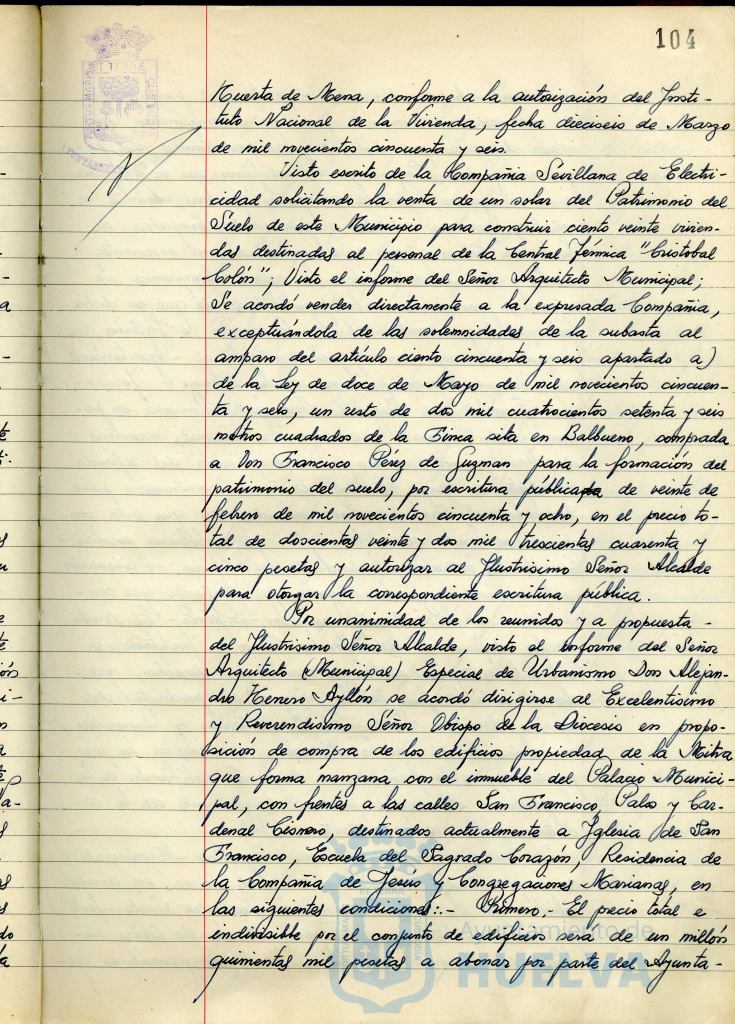 104
Huerta de Mena, conforme a la autorización del Insti-
tuto Nacional de la Vivienda, fecha dieciseis de Marzo
de mil novecientos cincuenta y seis.
Visto escrito de la Compañia Sevillana de Electri-
cidad solicitando la venta de un solar del Patrimonio del
Suelo de este Municipio para construir ciento veinte vivien-
das destinadas al personal de la Central Térmica "Cristobal
Colón"; Visto el informe del Señor Arquitecto Municipal;
Se acordó vender directamente a la expresada Compañia,
exceptuándola de las solemnidades de la subasta al
amparo del artículo ciento cincuenta y seis apartado a)
de la Ley de doce de Mayo de mil novecientos cincuen-
ta y seis, un resto de dos mil cuatrocientos setenta y seis
metros cuadrados de la Finca sita en Balbueno, comprada
a Don Francisco Pérez de Guzman para la formación del
patrimonio del suelo, por escritura pública de veinte de
febrero de mil novecientos cincuenta y ocho, en el precio to-
tal de doscientas veinte y dos mil trescientas cuarenta y
cinco pesetas y autorizar al Ilustrisimo Señor Alcalde
para otorgar la correspondiente escritura pública.
Por unanimidad de los reunidos y a propuesta -
del Ilustrisimo Señor Alcalde, visto el informe del Señor
Arquitecto (Municipal) Especial de Urbanismo Don Alejan-
dro Herrero Ayllón se acordó dirigirse al Excelentisimo
y Reverendisimo Señor Obispo de la Diocesis en propo-
sición de compra de los edificios propiedad de la Mitra
que forma manzana con el inmueble del Palacio Munici-
pal, con frentes a las calles San Francisco, Palos y Car-
denal Cisnero, destinados actualmente a Iglesia de San
Francisco, Escuela del Sagrado Corazón, Residencia de
la Compañia de Jesús y Congregaciones Marianas, en
las siguientes condiciones:.- Primero.- El precio total e
indivisible por el conjunto de edificios será de un millón
quinientas mil pesetas a abonar por parte del Ayunta-
Ayuntamiento de
HUELVA